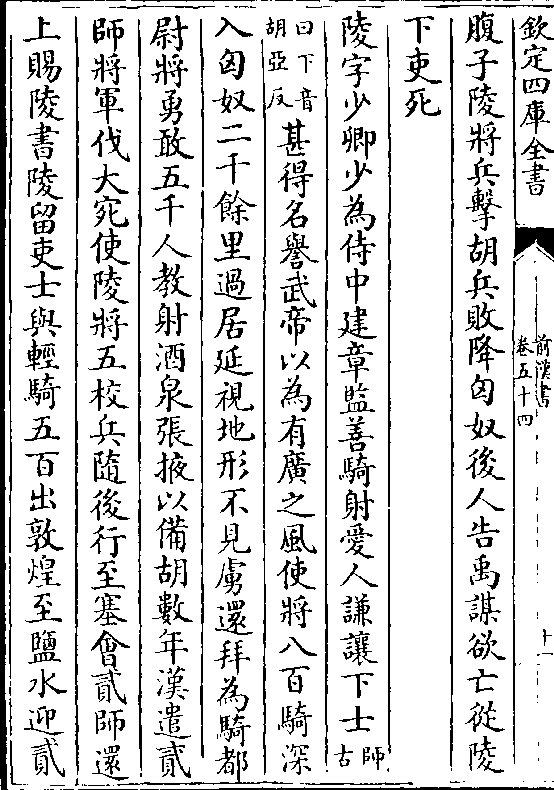 欽定四庫全書
前漢書
卷五十四
十一
腹子陵將兵擊胡兵敗降匈奴後人告禹謀欲亡從陵
下吏死
陵字少卿少為侍中建章監善騎射愛人謙讓下士師古
曰下音胡亞反甚得名譽武帝以為有廣之風使將八百騎深
入匈奴二千餘里過居延視地形不見虜還拜為騎都
尉將勇敢五千人教射酒泉張掖以備胡數年漢遣貳
師將軍伐大宛使陵將五校兵隨後行至塞會貳師還
上賜陵書陵留吏士與輕騎五百出敦煌至鹽水迎貳